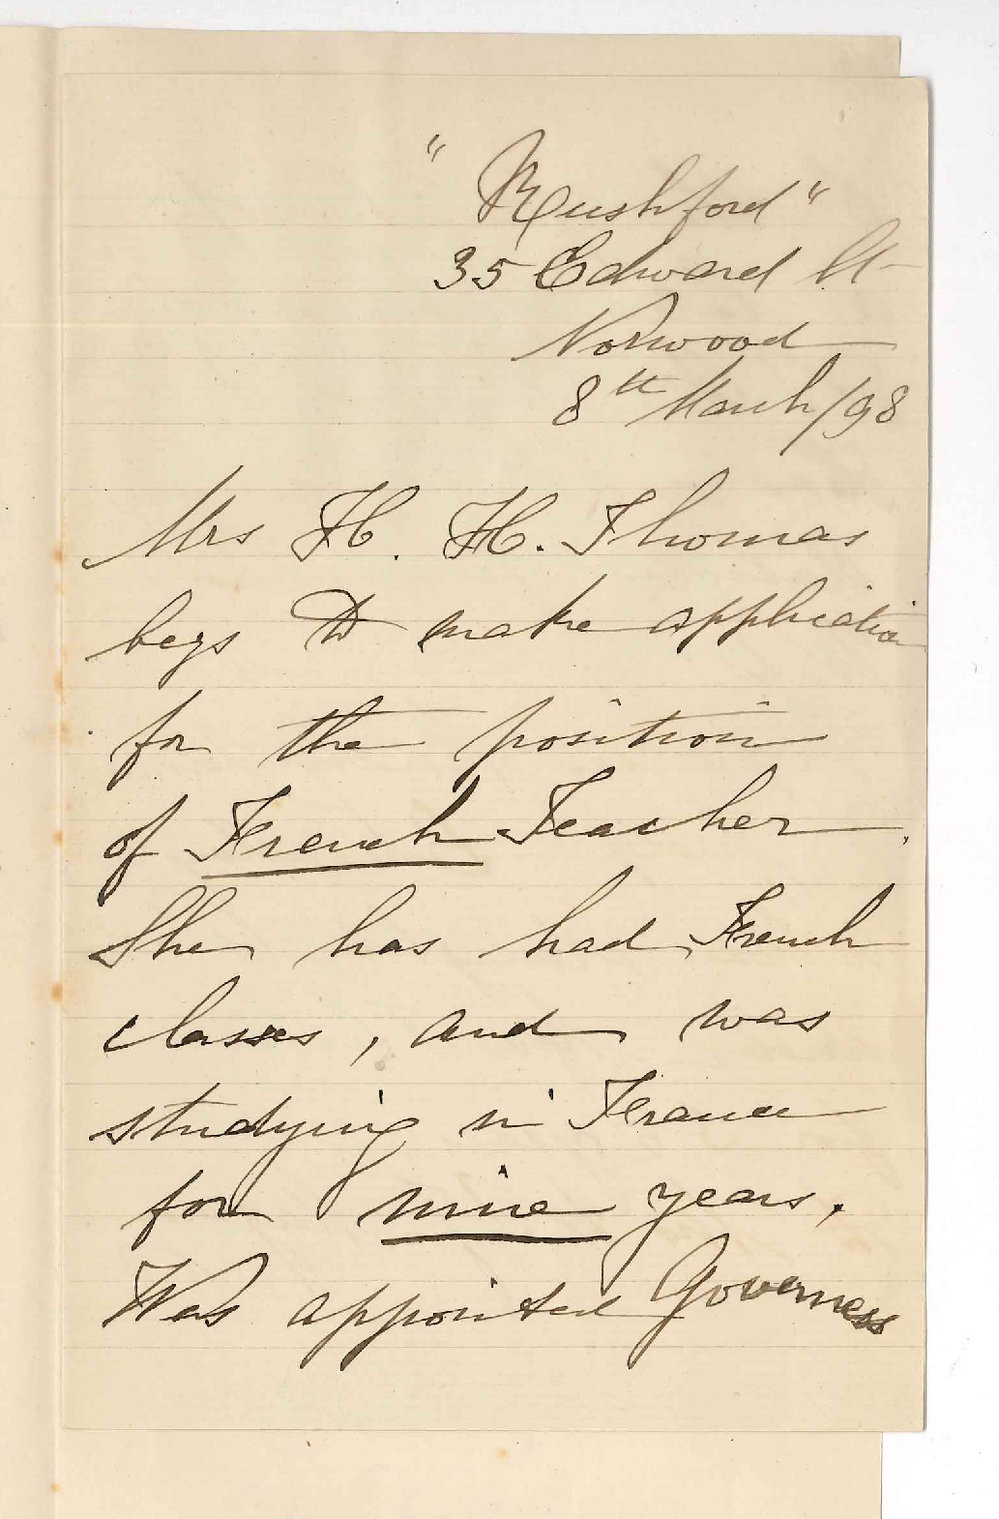 "Rushford"
35 Edward St
Norwood
8th March/98
Mrs H. H. Thomas
begs to make application
for the position
of French Teacher.
She has had French
classes, and was
studying in France
for nine years.
Was appointed Governess